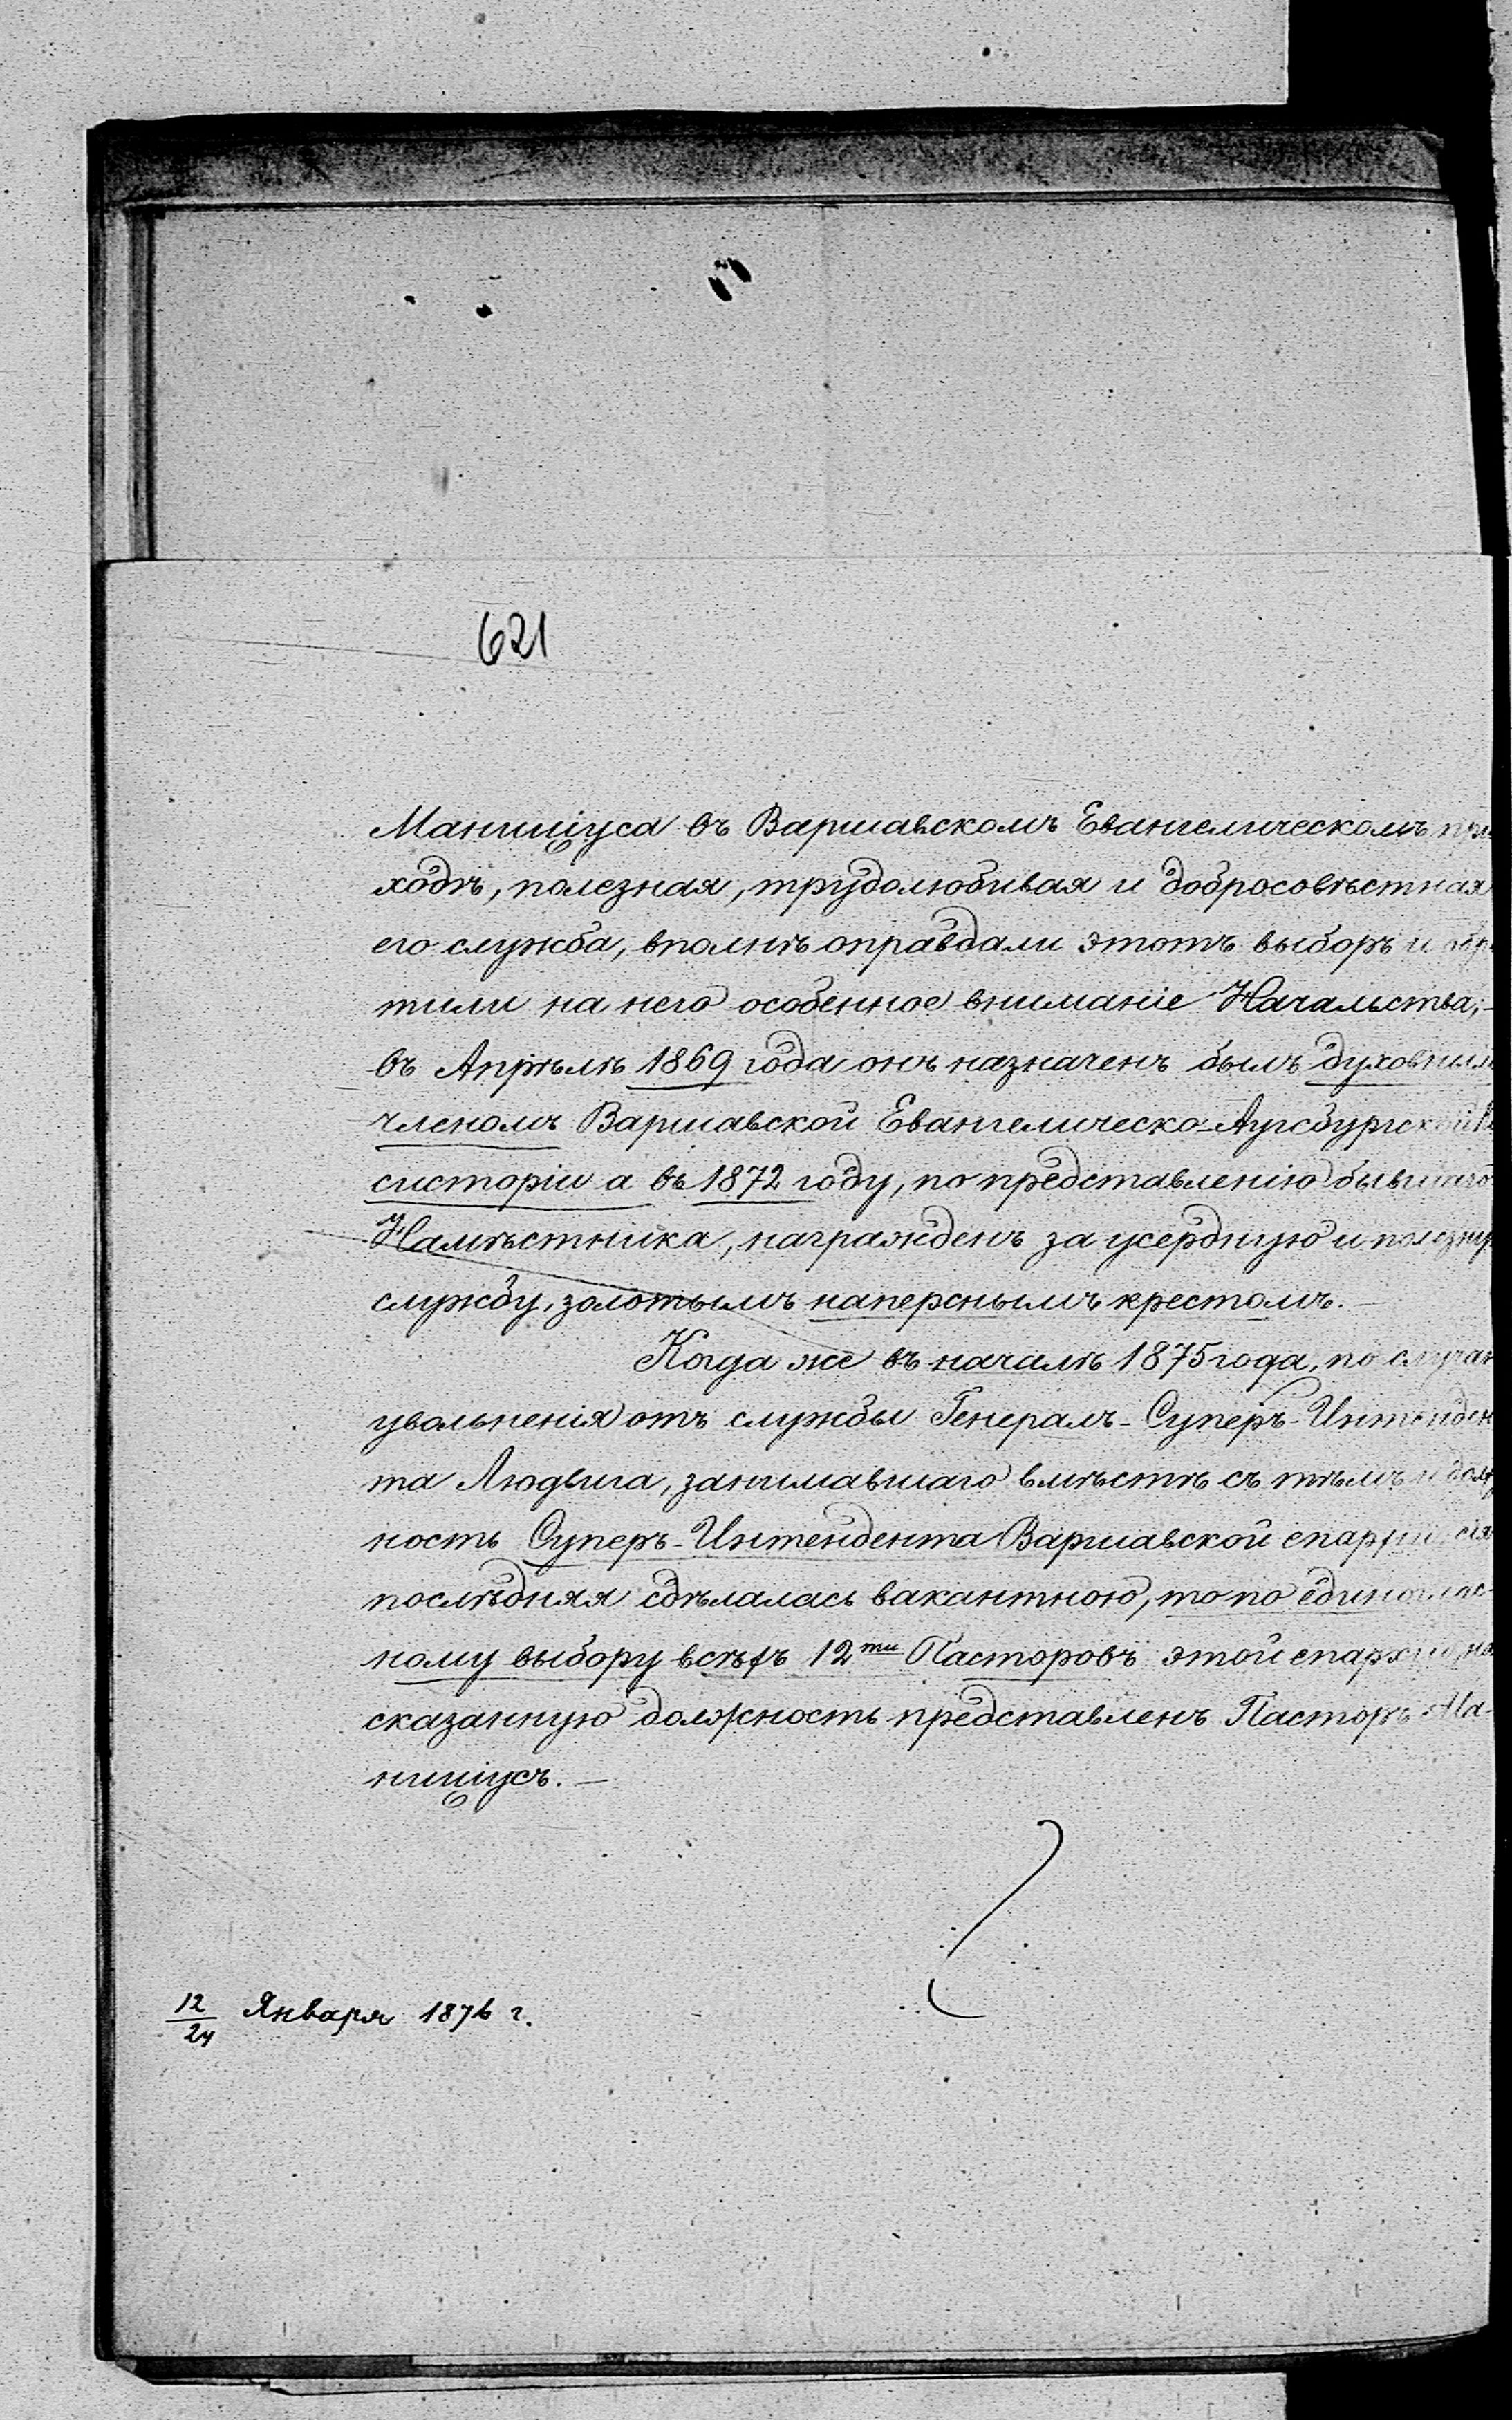 621
Маниціуса въ Варшавскомъ Евангелическомъ при
ходѣ, полезная, трудолюбивая и добросовѣстная
его служба, вполнѣ оправдали этотъ выборъ и обра
тили на него особенное вниманіе Начальства;-
въ Апрѣлѣ 1869 года онъ назначенъ былъ духовнымъ
членомъ Варшавской Евангелическо-Аугсбургской
систоріи а въ 1872 году, по представленію бывшаго
Намѣстника, награжденъ за усердную и полезную
службу, золотымъ наперснымъ крестомъ.-
Когда же въ началѣ 1875 года, по случаю
увольненія отъ службы Генералъ-Суперъ-Интенден
та Людвига, занимавшаго вмѣстѣ съ тѣмъ и долж
ность Суперъ-Интендента Варшавской епархіи, сія
послѣдняя сдѣлалась вакантною, то по единоглас-
ному выбору всѣхъ 12ти Пасторовъ этой епархіи, на
сказанную должность представленъ Пасторъ Ма-
ниціусъ.-
12/24 Января 1876 г.